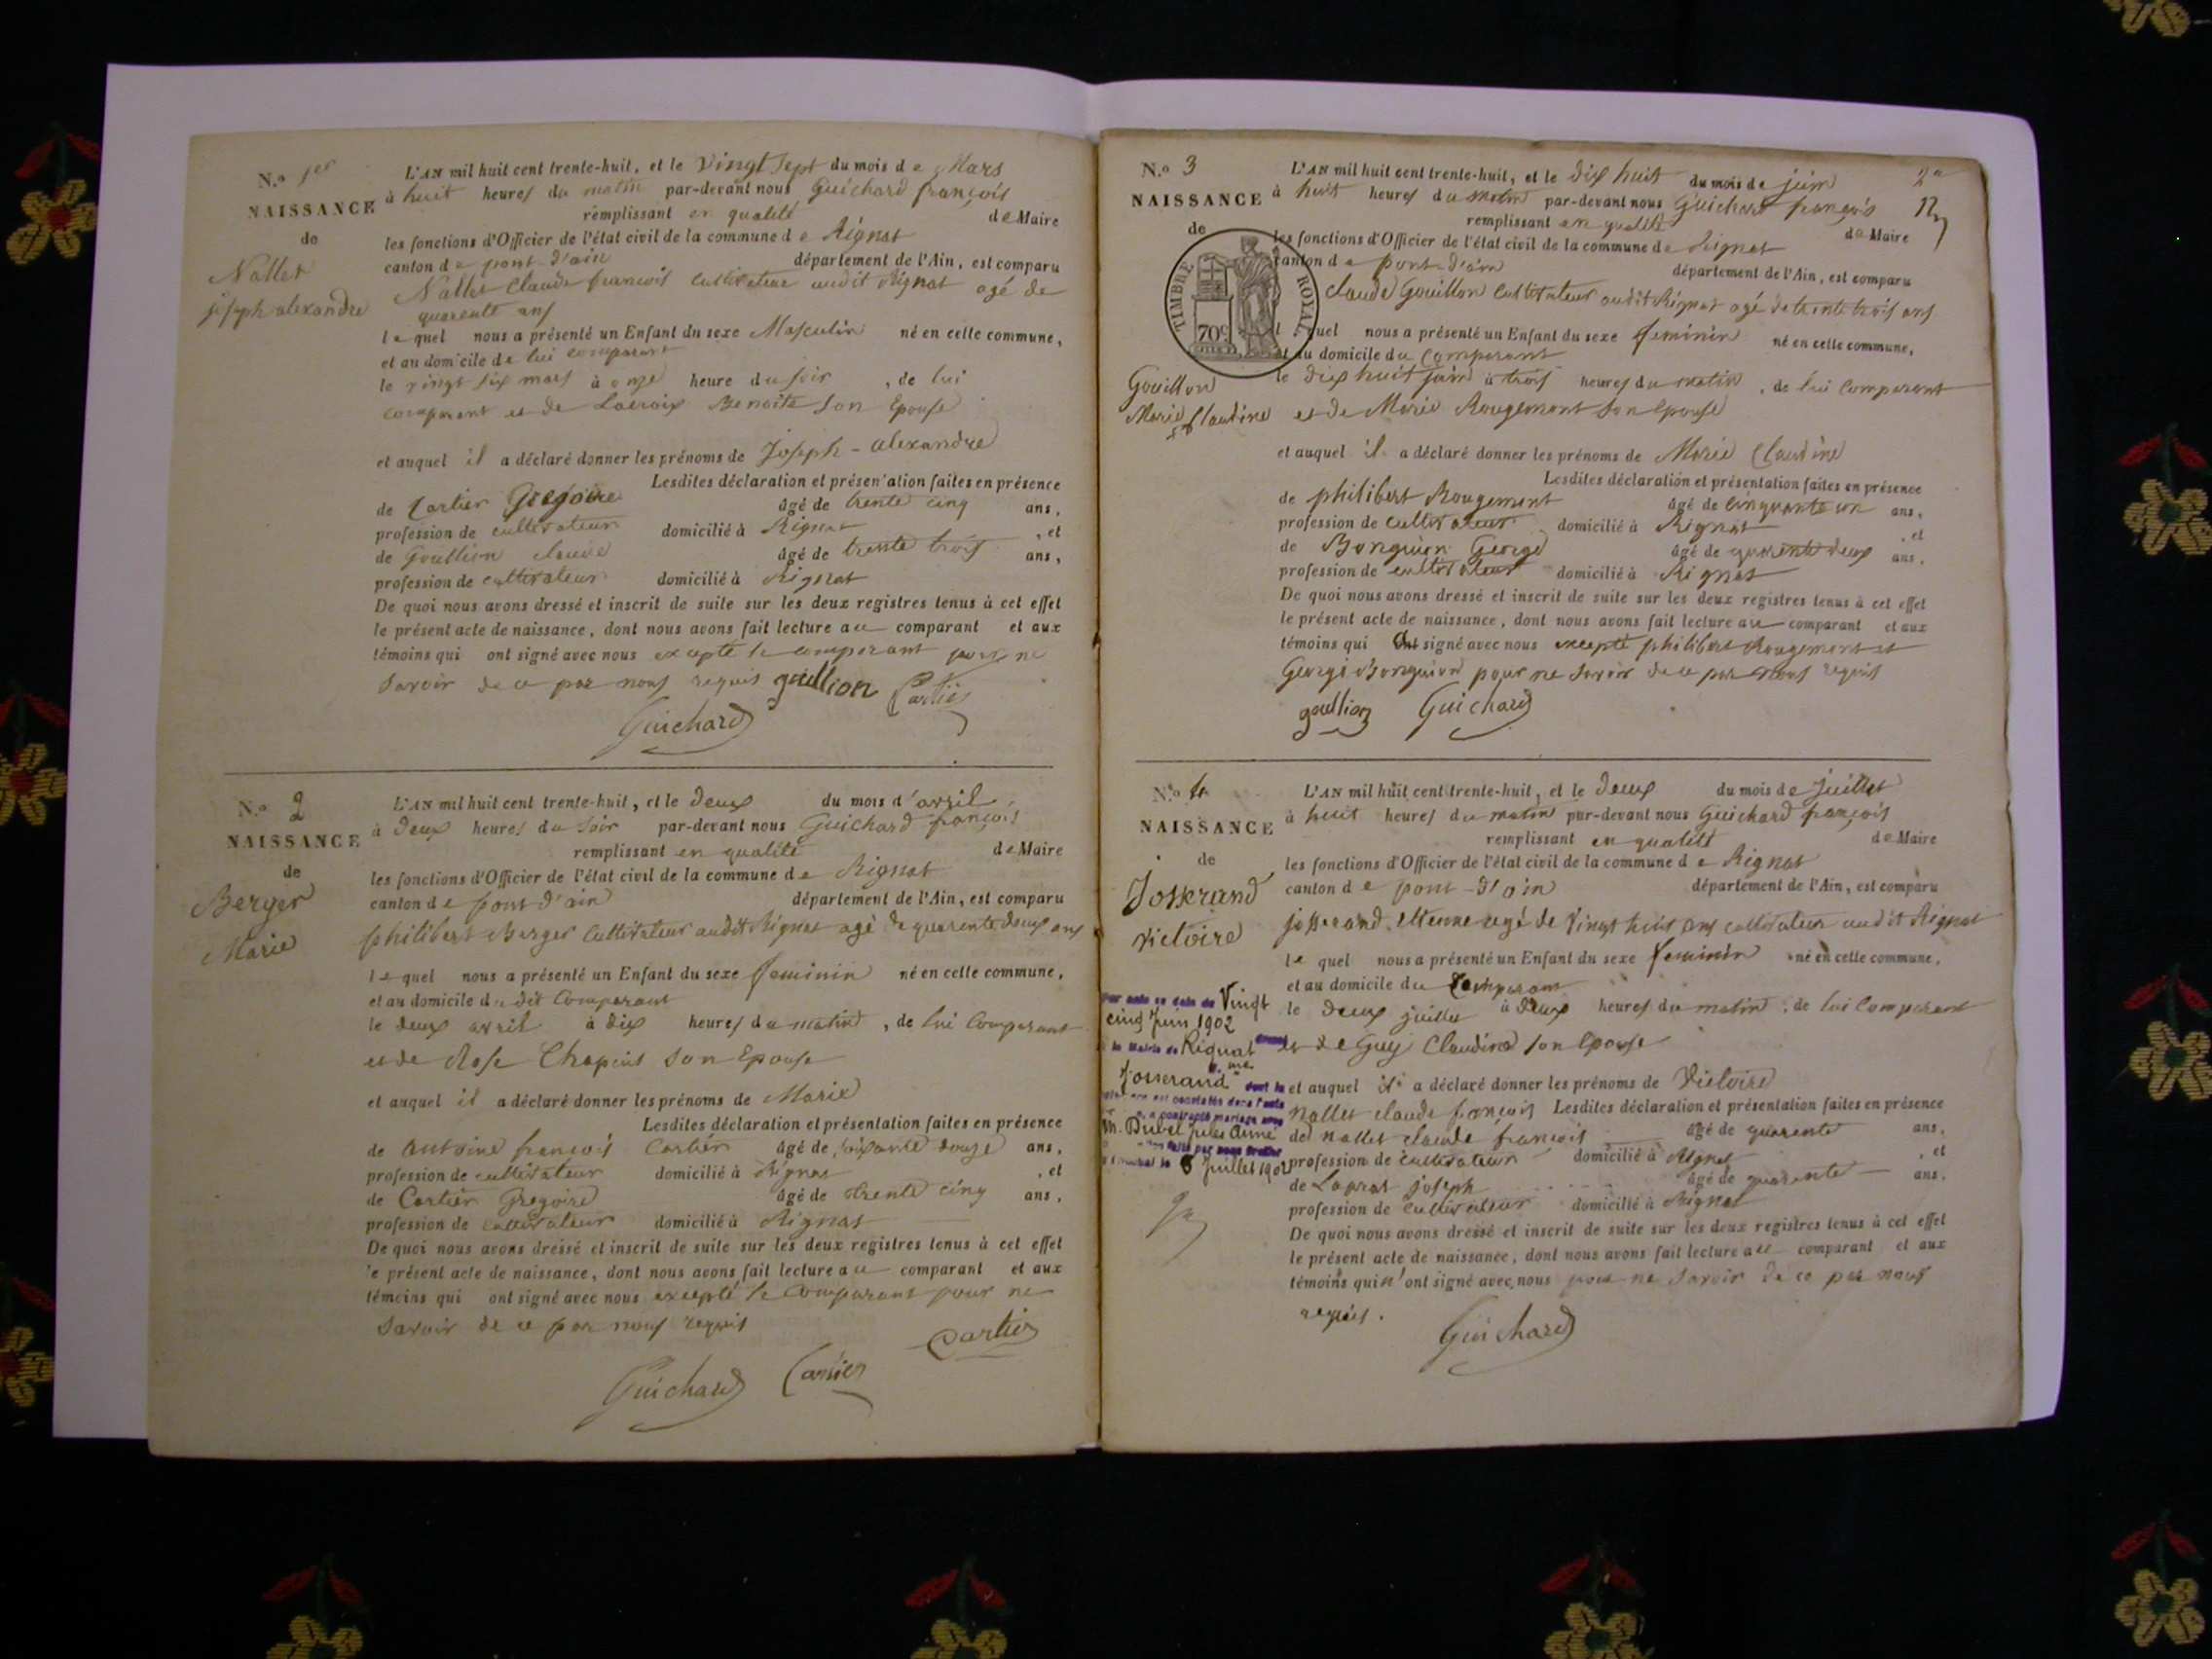 N.o 1er
NAISSANCE
de
Nallet
joseph alexandre
L'AN mil huit cent trente-huit, et le Vingt Sept du mois de Mars
à huit heures du matin par-devant nous Guichard françois
remplissant en qualité de Maire
les fonctions d'Officier de l'état civil de la commune de Rignat
canton de pont-d'ain département de l'Ain, est comparu
Nallet Claude francois cultivateur audit Rignat agé de
quarente ans
lequel nous a présenté un Enfant du sexe Masculin né en cette commune,
et au domicile de lui comparant
le vingt six mars à onze heure du soir, de lui
comparent et de Lacroix Benoite son Epouse
et auquel il a déclaré donner les prénoms de Joseph-alexandre
Lesdites déclaration et présentation faites en présence
de Cartier Gregoire âgé de trente cinq ans,
profession de cultivateur domicilié à Rignat, et
de Goullion claude âgé de trente trois ans,
profession de cultivateur domicilié à Rignat
De quoi nous avons dressé et inscrit de suite sur les deux registres tenus à cet effet
le présent acte de naissance, dont nous avons fait lecture au comparant et aux
témoins qui ont signé avec nous excepté le comparant pour ne
savoir de ce par nous requis goullion Cartier
Guichard
N.o 2
NAISSANCE
de
Berger
Marie
L'AN mil huit cent trente-huit, et le deux du mois d'avril
à deux heures du soir par-devant nous Guichard françois
remplissant en qualité de Maire
les fonctions d'Officier de l'état civil de la commune de Rignat
canton de pont d'ain département de l'Ain, est comparu
philibert Berger cultivateur audit Rignat agé de quarente deux ans
lequel nous a présenté un Enfant du sexe feminin né en cette commune,
et au domicile du dit Comparant
le deux avril à dix heures du matin, de lui Comparant
et de Rose Chapuis son Epouse
et auquel il a déclaré donner les prénoms de Marie
Lesdites déclaration et présentation faites en présence
de antoine françois Cartier âgé de soixante douze ans,
profession de cultivateur domicilié à Rignat, et
de Cartier Gregoire âgé de trente cinq ans,
profession de cultivateur domicilié à Rignat
De quoi nous avons dressé et inscrit de suite sur les deux registres tenus à cet effet
le présent acte de naissance, dont nous avons fait lecture au comparant et aux
témoins qui ont signé avec nous excepté le Comparant pour ne
savoir de ce par nous requis
Cartier
Guichard Cartier
N.o 3
NAISSANCE
de
TIMBRE ROYAL
70c
Gouillon
Marie Claudine
L'AN mil huit cent trente-huit, et le dix huit du mois de juin
à huit heures du matin par-devant nous Guichard françois
remplissant en qualité de Maire
les fonctions d'Officier de l'état civil de la commune de Rignat
canton de pont-d'ain département de l'Ain, est comparu
Claude Gouillon cultivateur audit Rignat agé de trente trois ans
lequel nous a présenté un Enfant du sexe feminin né en cette commune,
et au domicile du Comparant
le dix huit juin à trois heures du matin, de lui Comparant
et de Marie Rougemont son Epouse
et auquel il a déclaré donner les prénoms de Marie Claudine
Lesdites déclaration et présentation faites en présence
de philibert Rougemont âgé de cinquante un ans,
profession de cultivateur domicilié à Rignat, et
de Bonguion George âgé de quarente deux ans,
profession de cultivateur domicilié à Rignat
De quoi nous avons dressé et inscrit de suite sur les deux registres tenus à cet effet
le présent acte de naissance, dont nous avons fait lecture au comparant et aux
témoins qui ont signé avec nous excepté philibert Rougemont et
George Bonguion pour ne savoir de ce par nous requis
goullion Guichard
N.o 4
NAISSANCE
de
Josserand
victoire
L'AN mil huit cent trente-huit, et le deux du mois de juillet
à huit heures du matin par-devant nous Guichard françois
remplissant en qualité de Maire
les fonctions d'Officier de l'état civil de la commune de Rignat
canton de pont-d'ain département de l'Ain, est comparu
josserand etienne agé de Vingt huit ans cultivateur audit Rignat
le quel nous a présenté un Enfant du sexe feminin né en cette commune,
et au domicile du Comparant
le deux juillet à deux heures du matin, de lui Comparant
et de Guy Claudine son Epouse
et auquel il a déclaré donner les prénoms de Victoire
nallet claude françois Lesdites déclaration et présentation faites en présence
de nallet claude françois âgé de quarente ans,
profession de cultivateur domicilié à Rignat, et
de Laprat joseph âgé de quarente ans,
profession de cultivateur domicilié à Rignat
De quoi nous avons dressé et inscrit de suite sur les deux registres tenus à cet effet
le présent acte de naissance, dont nous avons fait lecture au comparant et aux
témoins qui n'ont signé avec nous pour ne savoir de ce par nous
requis.
Guichard
Par acte en date du Vingt
cinq Juin 1902
la Mairie de Rignat
Josserand dont la
a contracté mariage avec
M. Dubel Jules Aimé
8 Juillet 1902